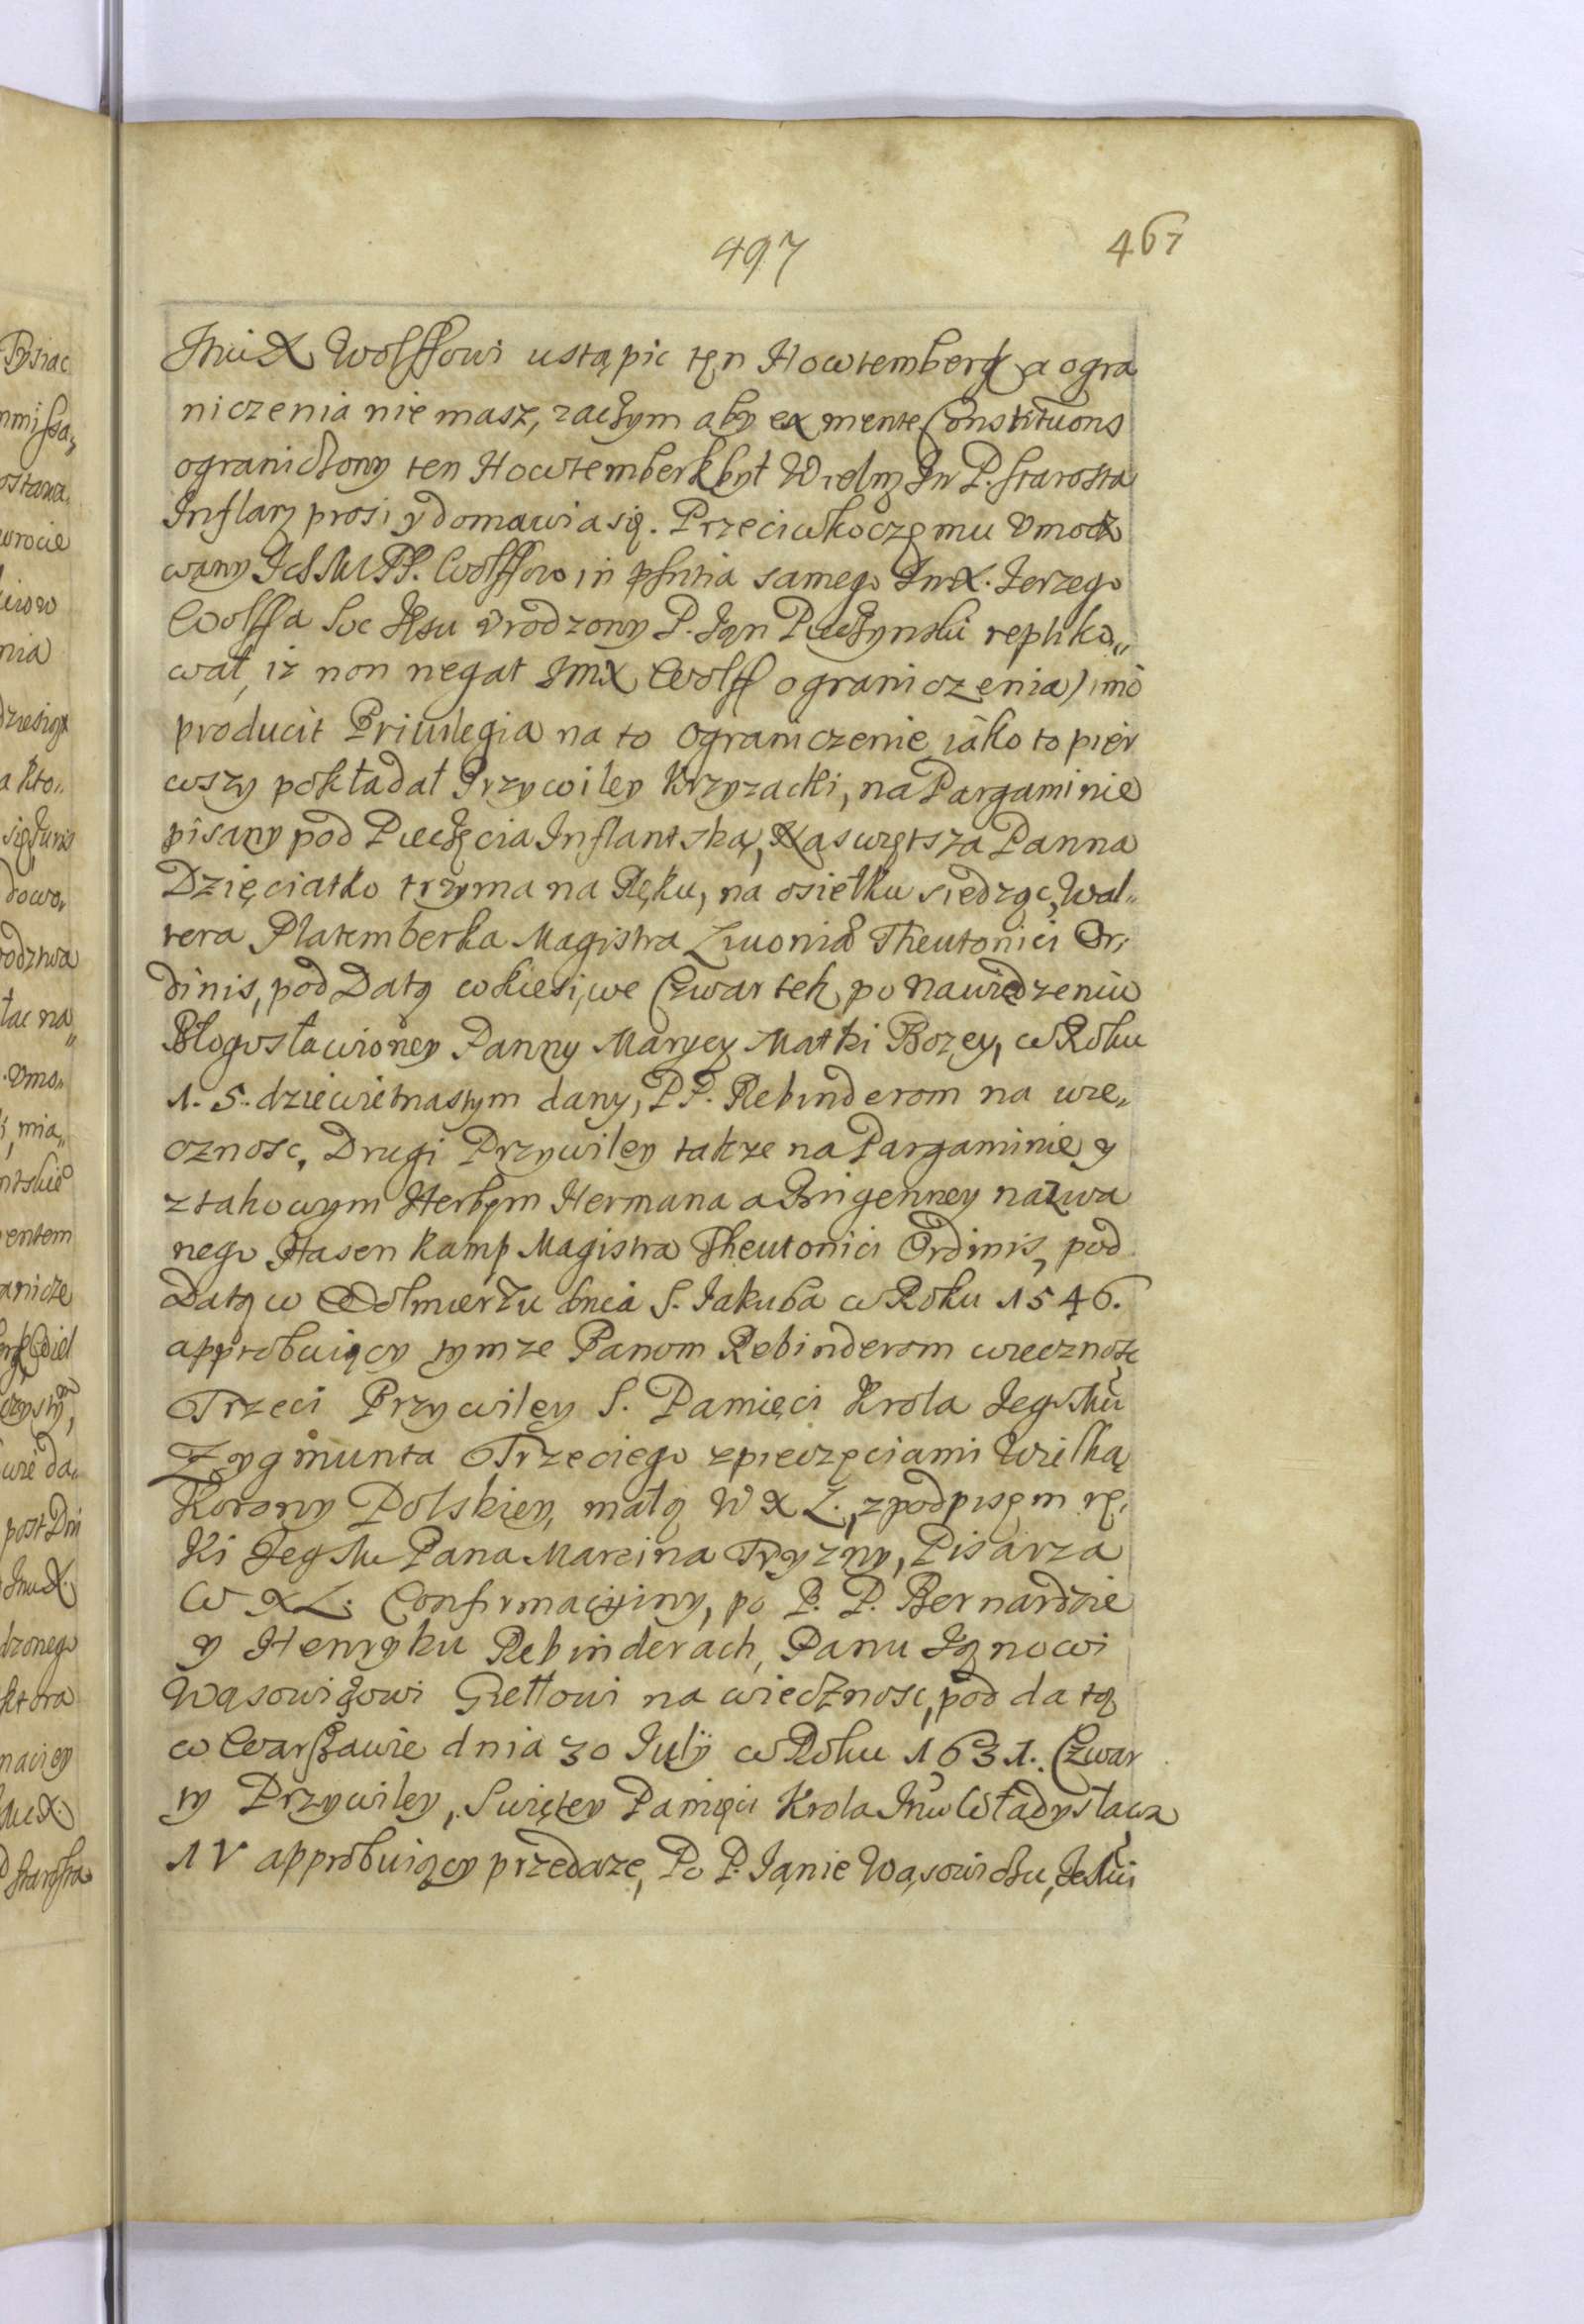 497
467
ImX Wolffowi ustąpic tęn Howtemberg a ogra
niczenia nie masz, zaczym aby ex mente Constituons
ograniczony ten Howtemberk był Wielm Jm P. Starosta
Inflan prosi y domawia się. Przeciwko czemu Vmoco
wany IchMPP. Wolffow in pñtia samego ImX. Jerzego
Wolffa Soc Jesu Vrodzony P. Jan Pieczynski repliko„
wał, iz non negat ImX Wolff ograniczenia, imo
producit Priuilegia na to ograniczenie iako to pier
wszy pokładał Przywiley Krzyzacki, na Pargaminie
pisany pod Pieczęcia Inflantską, Naswiętsza Panna
Dzięciatko trzyma na Ręku, na osiełku siedząc, Wal„
tera Platemberka Magistra Liuoniæ Theutonici Or„
dinis, pod Datą w Kiesi, we Czwartek po Nawiedzeniu
Błogosławioney Panny Maryey Matki Bozey, w Roku
1. 5. dziewietnastym dany, PP. Rebinderom na wie„
cznosc, Drugi Przywiley takze na Pargaminie y
z takowym Herbem Hermana a Bingenney nazwa
nego Hasen kamp Magistra Theutonici Ordinis, pod
Datą w Wolmerzu dnia S. Jakuba w Roku 1546.
approbuiący tymze Panom Rebinderom wiecznosc
Trzeci Przywiley S. Pamięci Krola Jegomci
Zygmunta Trzeciego z pieczęciami Wielką
Korony Polskiey, małą W X L., z podpisem rę„
ki Jegom Pana Marcina Tryzny, Pisarza
W X L. Confirmacyiny, po P. P. Bernardzie
y Henryku Rebinderach, Panu Janowi
Wąsowiczowi Giettowi na wiecznosc, pod datą
w Warszawie dnia 30 July w Roku 1631. Czwar
ty Przywiley, Swiętey Pamięci Krola Jmci Władysława
IV approbuiący przedaze, Po P. Janie Wąsowiczu,